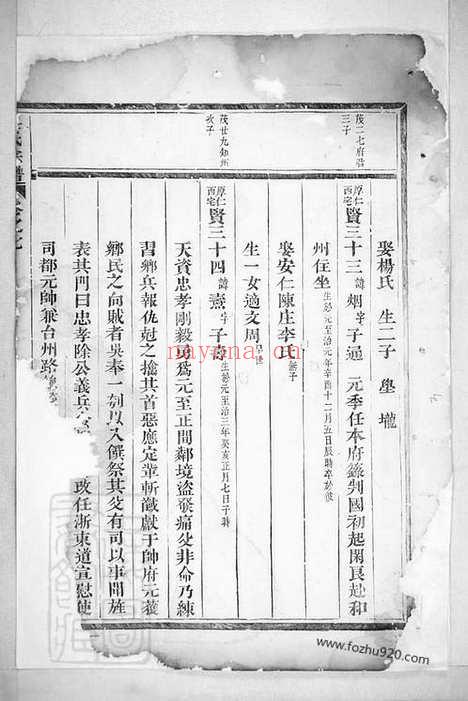 茂二七府君
三子
茂廿九知州
次子
娶楊氏 生二子 壂 壠
厚仁
西宅 賢三十三 諱烟 字子通 元季任本府錄判國初起閑良赴和
州住坐 生於元至治元年辛酉十二月五日辰時卒於彼
娶安仁陳庄李氏 無子
生一女適文周
厚仁
西宅 賢三十四 諱 字子 生於元至治三年癸亥正月七日子時
天資忠孝剛毅勇爲元至正間鄰境盜發痛父非命乃練
習鄉兵報仇尅之擒其首惡應定輩斬馘獻于帥府元獲
鄉民之向賊者吳奉一剜其又饌祭其父有司以事聞旌
表其門曰忠孝除公義兵 改任浙東道宣慰使
司都元帥兼台州路
氏宗譜
nayona.cn
www.fozhu920.com